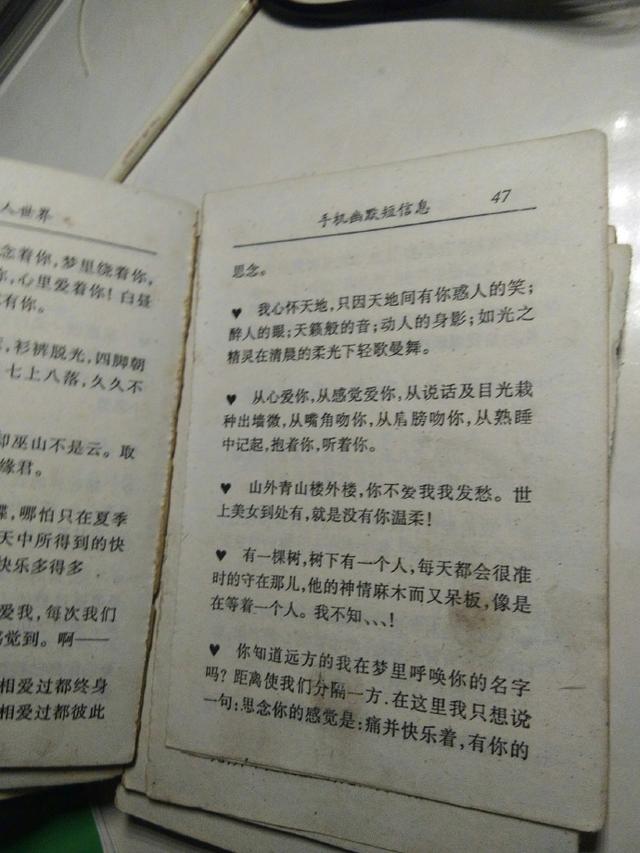 人世界
念着你,梦里绕着你,
你,心里爱着你!白昼
有你。
,衫裤脱光,四脚朝
七上八落,久久不
却巫山不是云。取
缘君。
蝶,哪怕只在夏季
天中所得到的快
快乐多得多
爱我,每次我们
感觉到。啊——
相爱过都终身
相爱过都彼此
手机幽默短信息 47
思念。
♥ 我心怀天地,只因天地间有你惑人的笑;
醉人的眼;天籁般的音;动人的身影;如光之
精灵在清晨的柔光下轻歌曼舞。
♥ 从心爱你,从感觉爱你,从说话及目光栽
种出墙微,从嘴角吻你,从肩膀吻你,从熟睡
中记起,抱着你,听着你。
♥ 山外青山楼外楼,你不爱我我发愁。世
上美女到处有,就是没有你温柔!
♥ 有一棵树,树下有一个人,每天都会很准
时的守在那儿,他的神情麻木而又呆板,像是
在等着一个人。我不知、、、!
♥ 你知道远方的我在梦里呼唤你的名字
吗?距离使我们分隔一方.在这里我只想说
一句:思念你的感觉是:痛并快乐着,有你的